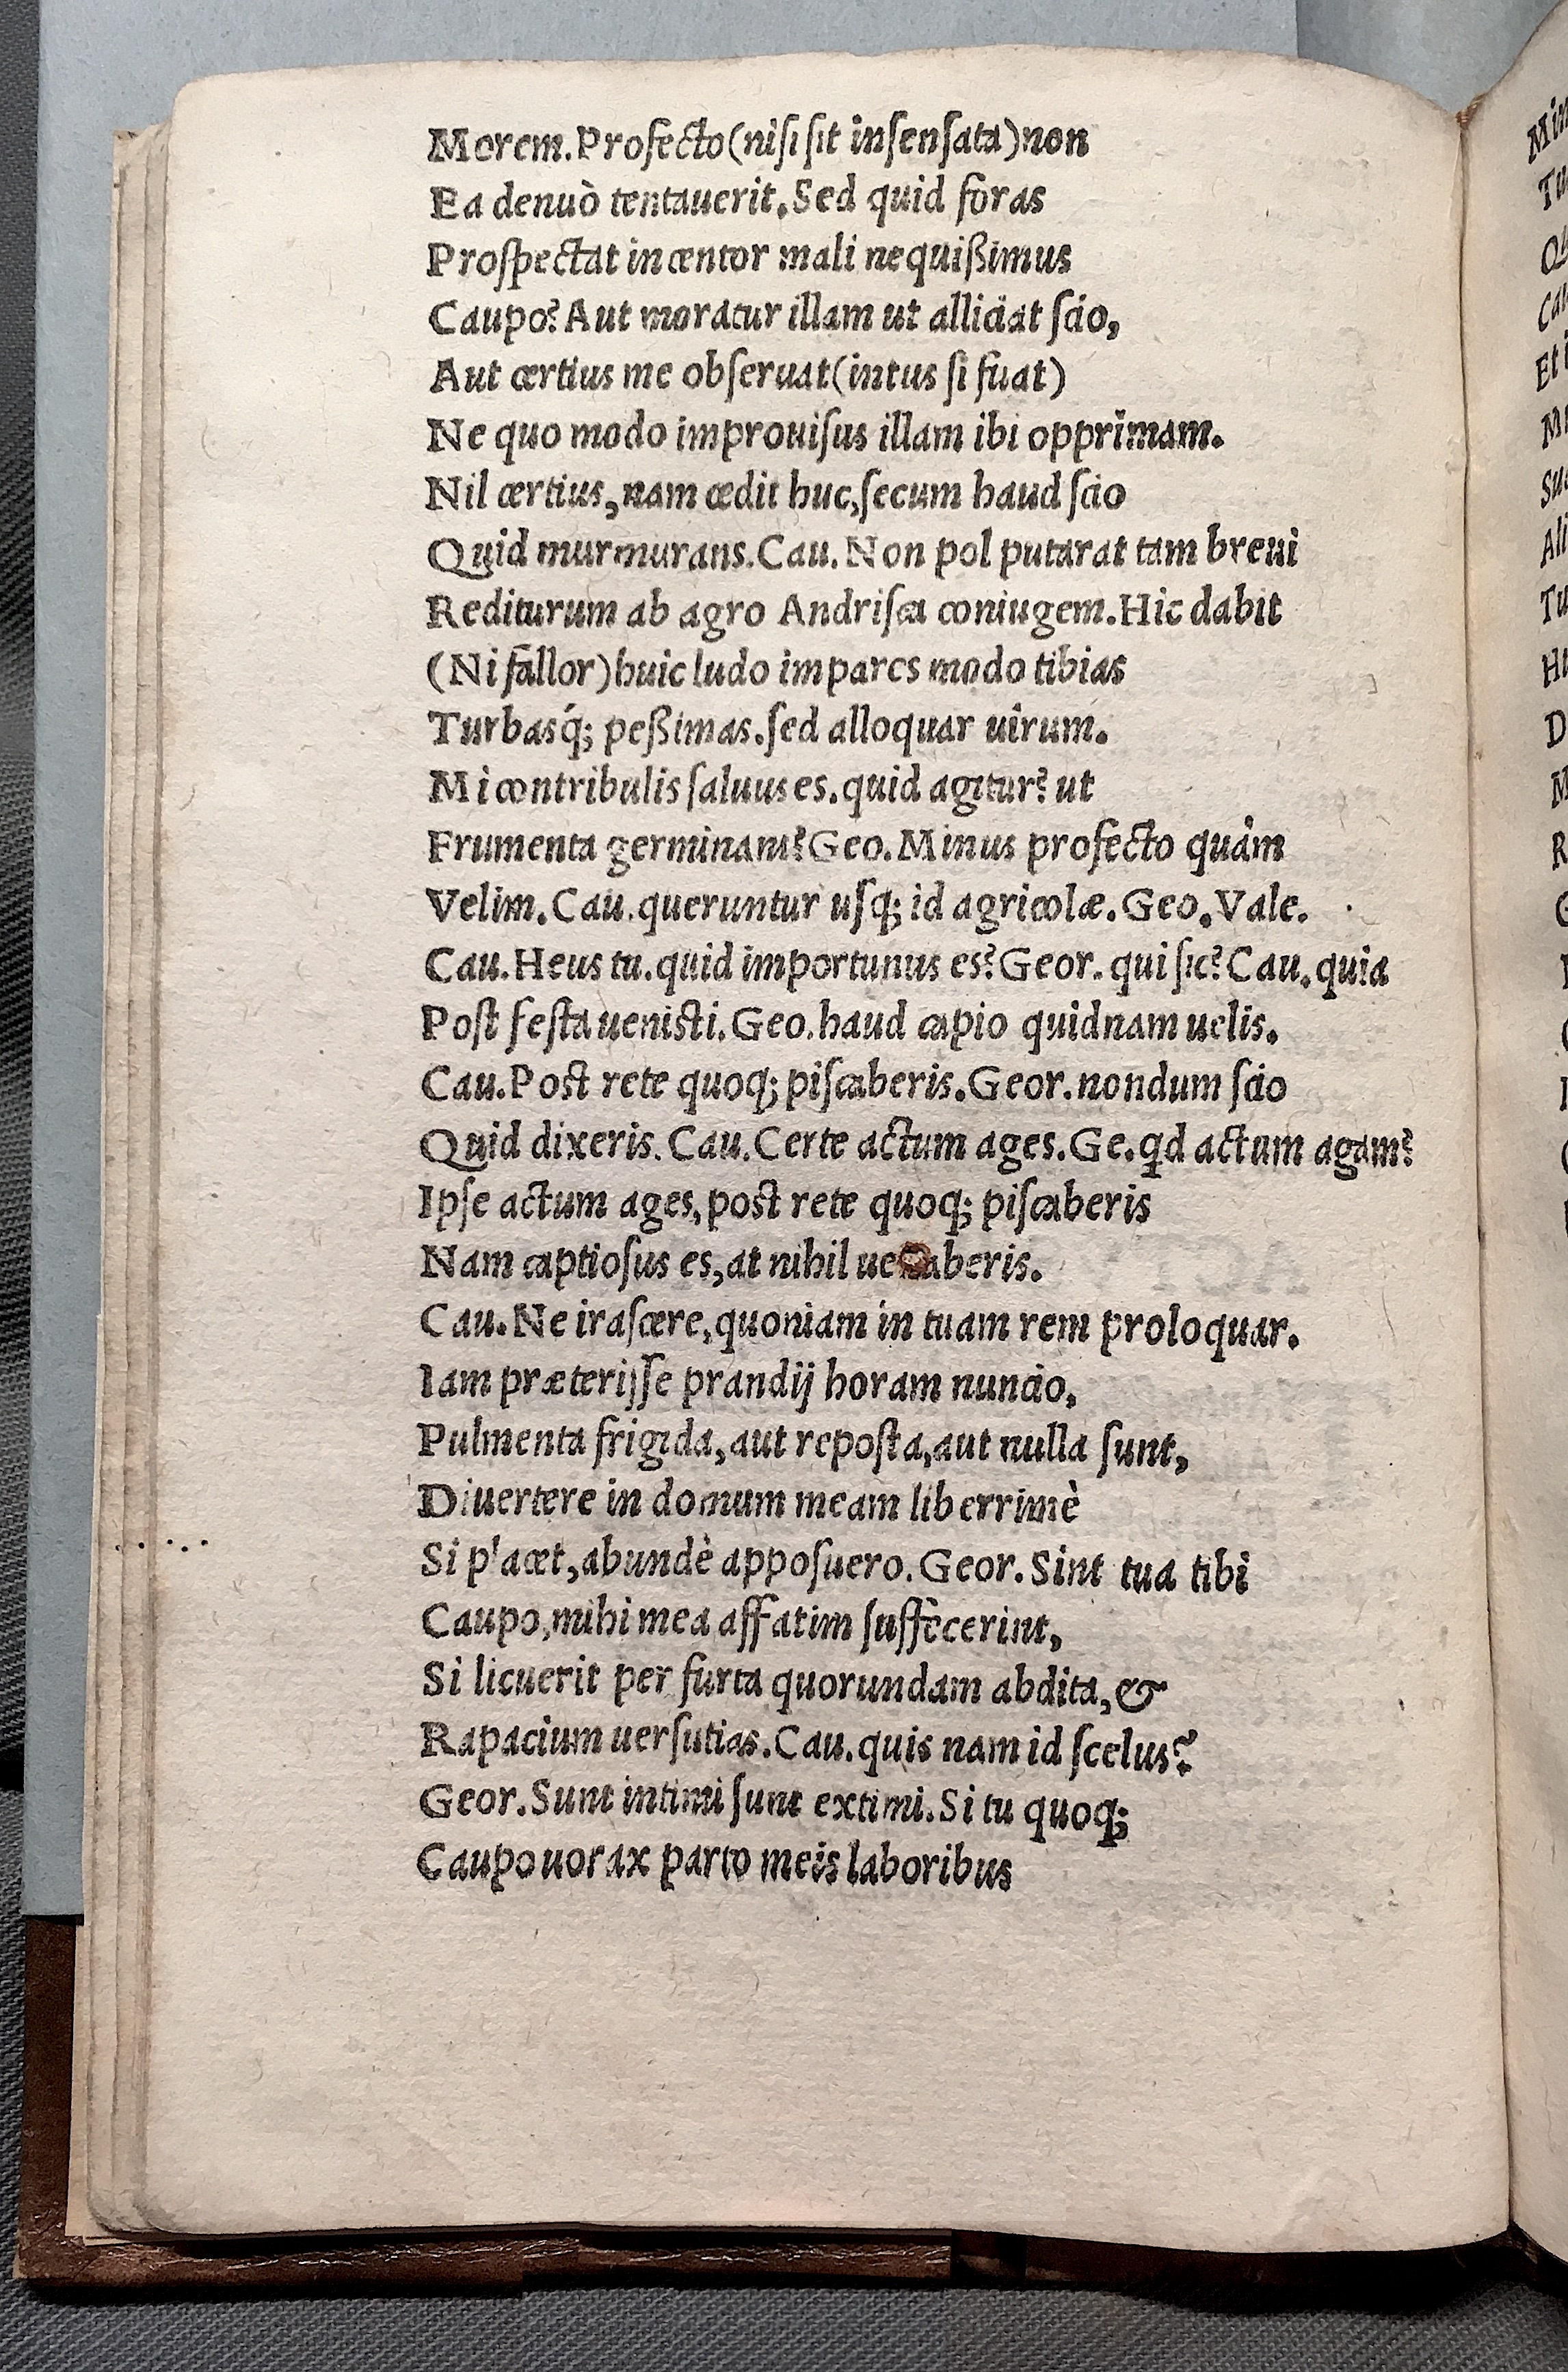 Morem. Profecto (niſi ſit inſenſata) non
Ea denuò tentauerit, Sed quid foras
Proſpectat incentor mali nequißimus
Caupo? Aut moratur illam ut alliciat ſcio,
Aut certius me obſeruat (intus ſi fuat)
Ne quo modo improuiſus illam ibi opprimam.
Nil certius, nam cedit huc, ſecum haud ſcio
Quid murmurans. Cau. Non pol putarat tam breui
Rediturum ab agro Andriſca coniugem. Hic dabit
(Ni fallor) huic ludo impares modo tibias
Turbasq́; peßimas. ſed alloquar uirum.
Mi contribulis ſaluus es. quid agitur? ut
Frumenta germinant? Geo. Minus profecto quàm
Velim. Cau. queruntur uſq; id agricolæ. Geo. Vale.
Cau. Heus tu. quid importunus es? Geor. qui ſic? Cau. quia
Poſt feſta ueniſti. Geo. haud capio quidnam uelis.
Cau. Poſt rete quoq; piſcaberis. Geor. nondum ſcio
Quid dixeris. Cau. Certe actum ages. Ge. qd actum agam?
Ipſe actum ages, poſt rete quoq; piſcaberis
Nam captioſus es, at nihil aberis.
Cau. Ne iraſcere, quoniam in tuam rem proloquar.
Iam præterijſſe prandij horam nuncio,
Pulmenta frigida, aut repoſta, aut nulla ſunt,
Diuertere in domum meam liberrimè
Si placet, abundè appoſuero. Geor. Sint tua tibi
Caupo, mihi mea affatim ſuffecerint,
Si licuerit per furta quorundam abdita, &
Rapacium uerſutias. Cau. quis nam id ſcelus?
Geor. Sunt intimi ſunt extimi. Si tu quoq;
Caupo uorax parto meis laboribus